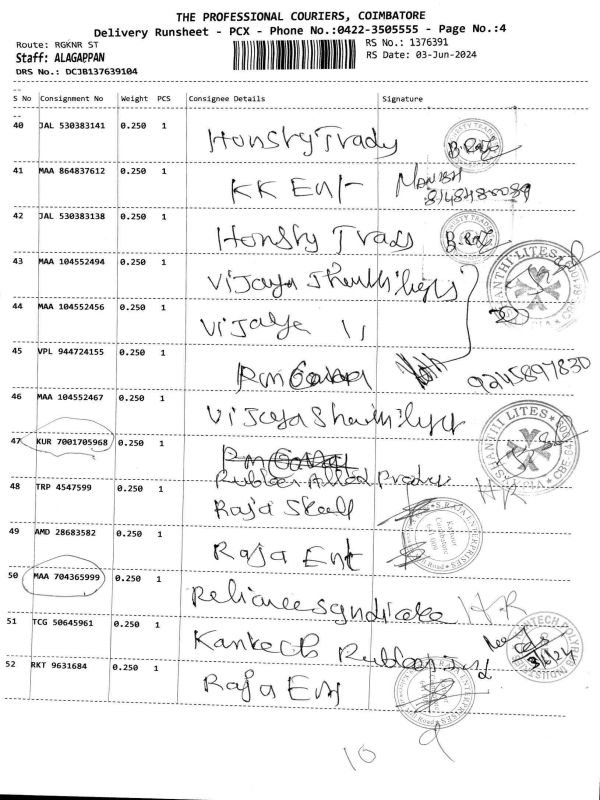 THE PROFESSIONAL COURIERS, COIMBATORE
Delivery Runsheet - PCX - Phone No.:0422-3505555 - Page No.:4
Route: RGKNR ST RS No.: 1376391
Staff: ALAGAPPAN RS Date: 03-Jun-2024
DRS No.: DCJB137639104
S No Consignment No Weight PCS Consignee Details Signature
40 JAL 530383141 0.250 1
41 MAA 864837612 0.250 1 KK Ent Manish
8148480089
42 JAL 530383138 0.250 1
43 MAA 104552494 0.250 1 Vijaya
44 MAA 104552456 0.250 1 Vijaya 11
45 VPL 944724155 0.250 1
9245897830
46 MAA 104552467 0.250 1 Vijaya
47 KUR 7001705968 0.250 1 Rubber Allied Produc H.R
48 TRP 4547599 0.250 1 Raja
49 AMD 28683582 0.250 1 Raja Ent
50 MAA 704365999 0.250 1 Reliance Syndicate H.R
51 TCG 50645961 0.250 1 Rubber ind
3/6/24
52 RKT 9631684 0.250 1 Raja Ent
10 9